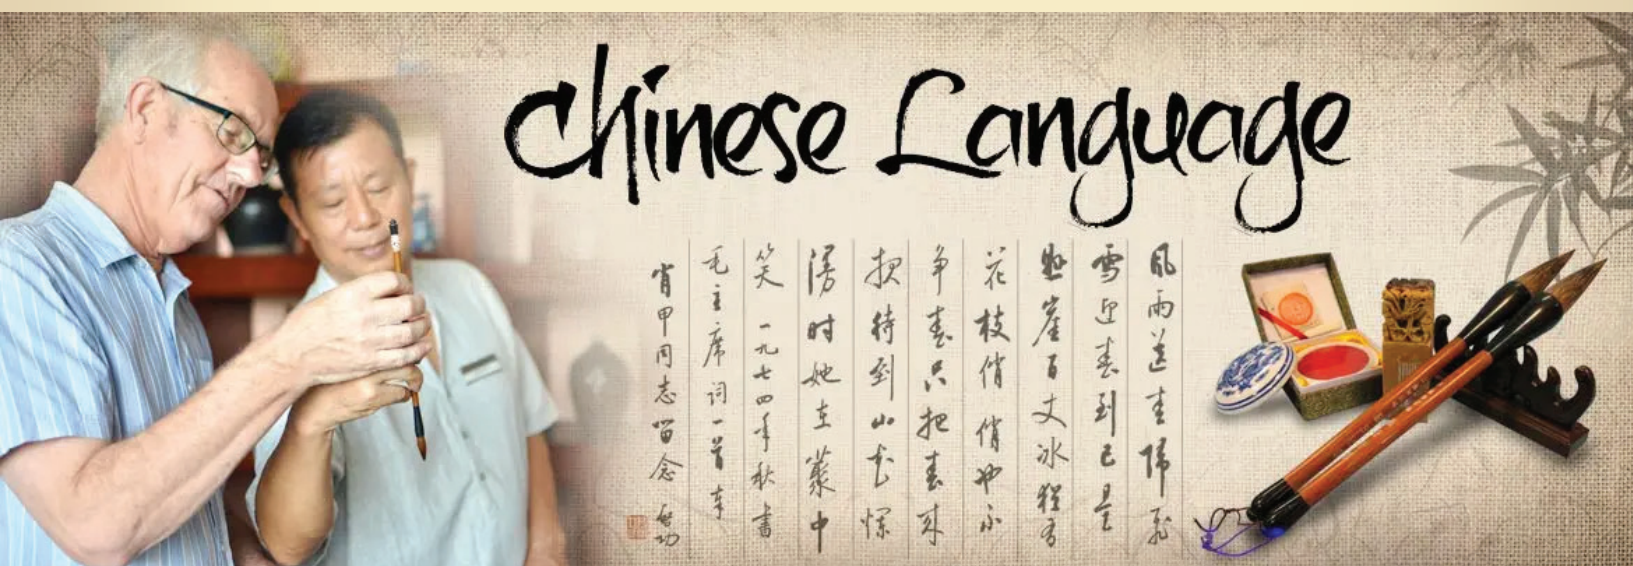 Chinese Language
风雨送春归飞
雪迎春到已是
悬崖百丈冰猶有
花枝俏俏也不
争春只把春来
报待到山花烂
漫时她在叢中
笑 一九七四年秋書
毛主席词一首奉
肖甲同志留念 启功